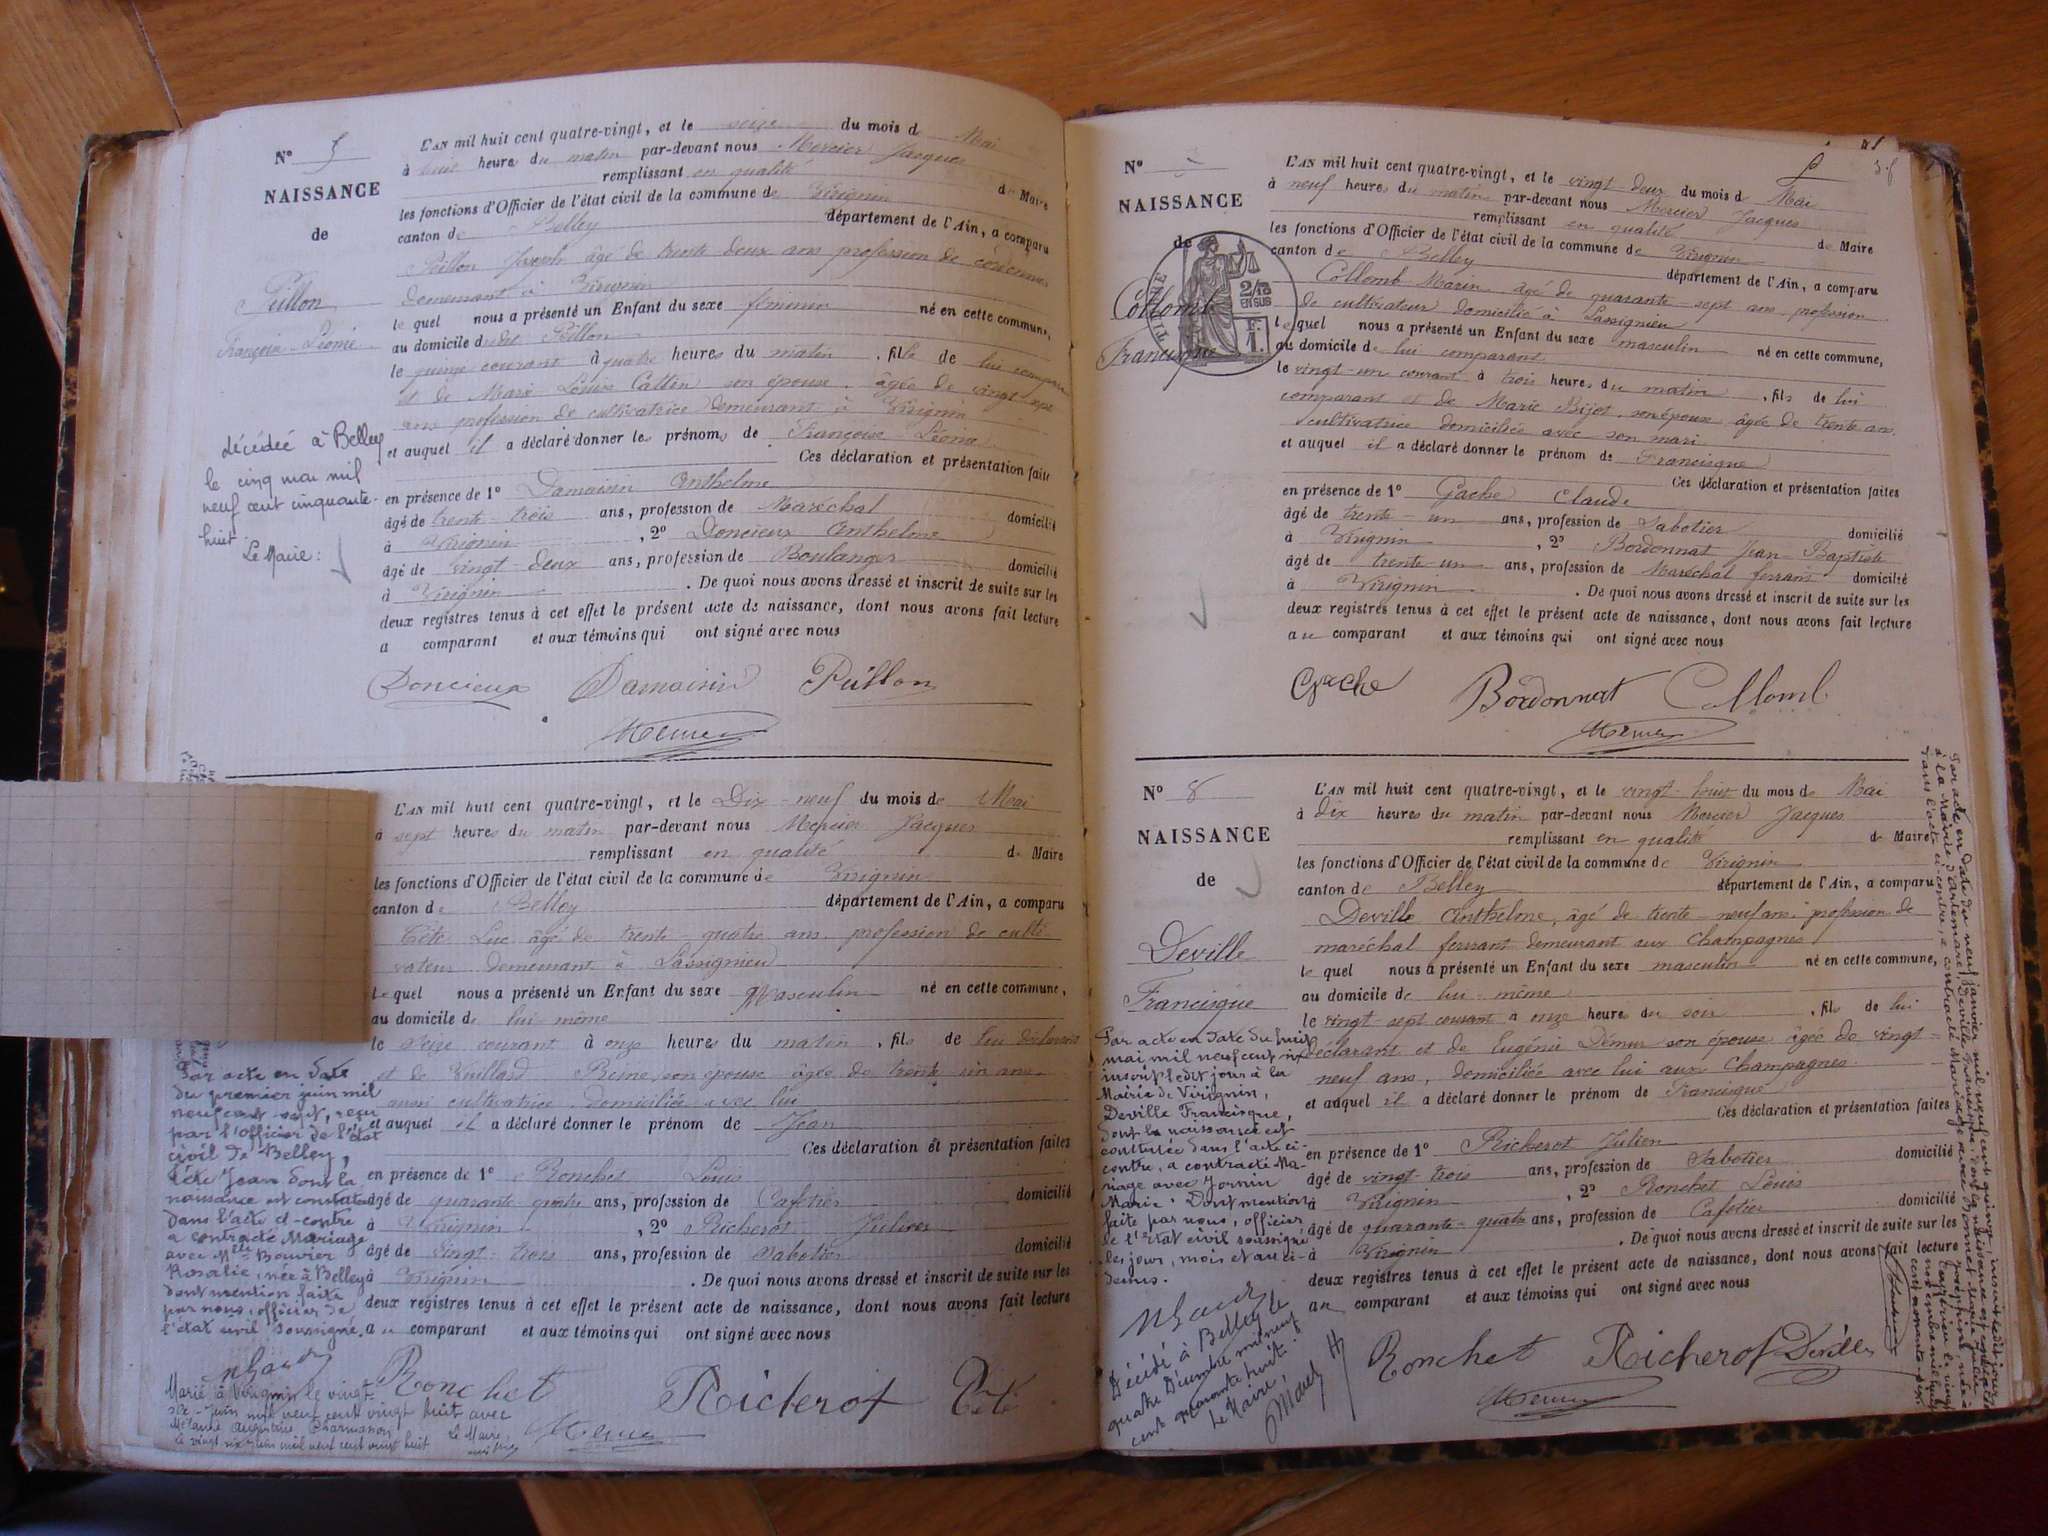 N° 5
NAISSANCE
de
Peillon
Françoise-Léonie
décédée à Belley
le cinq mai mil
neuf cent cinquante-
huit
Le Maire:
L'AN mil huit cent quatre-vingt, et le seize du mois d Mai
à huit heures du matin par-devant nous Mercier Jacques
remplissant en qualité de Maire
les fonctions d'Officier de l'état civil de la commune de Virignin
canton de Belley département de l'Ain, a comparu
Peillon Joseph âgé de trente deux ans profession de
demeurant à Virignin
lequel nous a présenté un Enfant du sexe féminin né en cette commune,
au domicile dudit Peillon
le quinze courant à quatre heures du matin, fille de lui comparant
et de Marie Louise Cattin son épouse, âgée de vingt sept
ans profession de cultivatrice demeurant à Virignin
et auquel il a déclaré donner les prénoms de Françoise Léonie
Ces déclaration et présentation faite
en présence de 1° Damaisin Anthelme
âgé de trente-trois ans, profession de Maréchal domicilié
à Virignin, 2° Doncieux Anthelme
âgé de vingt-deux ans, profession de Boulanger domicilié
à Virignin. De quoi nous avons dressé et inscrit de suite sur les
deux registres tenus à cet effet le présent acte de naissance, dont nous avons fait lecture
a comparant et aux témoins qui ont signé avec nous
Doncieux Damaisin Peillon
Mercier
L'AN mil huit cent quatre-vingt, et le Dix-neuf du mois de Mai
à sept heures du matin par-devant nous Mercier Jacques
remplissant en qualité de Maire
les fonctions d'Officier de l'état civil de la commune de Virignin
canton de Belley département de l'Ain, a comparu
Cété Luc âgé de trente-quatre ans, profession de culti-
vateur demeurant à Lassignieu
lequel nous a présenté un Enfant du sexe Masculin né en cette commune,
au domicile de lui-même
le seize courant à onze heures du matin, fils de lui déclarant
et de Vuillard Reine, son épouse âgée de trente un ans
aussi cultivatrice, domiciliée avec lui
et auquel il a déclaré donner le prénom de Jean
Ces déclaration et présentation faites
en présence de 1° Ronchet Louis
âgé de quarante quatre ans, profession de Cafetier domicilié
à Virignin, 2° Richerot Julien
âgé de vingt-trois ans, profession de Sabotier domicilié
à Virignin. De quoi nous avons dressé et inscrit de suite sur les
deux registres tenus à cet effet le présent acte de naissance, dont nous avons fait lecture
au comparant et aux témoins qui ont signé avec nous
Ronchet Richerot Cété
Mercier
Par acte en date
du premier juin mil
neuf cent sept, reçu
par l'Officier de l'état
civil de Belley,
Cété Jean dont la
naissance est constatée
dans l'acte ci-contre
a contracté Mariage
avec Mlle Bouvier
Rosalie, née à Belley
dont mention faite
par nous, officier de
l'état civil soussigné.
Marié à Virignin le vingt
six-juin mil neuf cent vingt huit avec
Mélanie Augustine Charmasson
le vingt six juin mil neuf cent vingt huit Le Maire,
N°
NAISSANCE
de
2/10
EN SUS
F.
1.
Collomb
Francisque
L'AN mil huit cent quatre-vingt, et le vingt-deux du mois d Mai
à neuf heures du matin par-devant nous Mercier Jacques
remplissant en qualité de Maire
les fonctions d'Officier de l'état civil de la commune de Virignin
canton de Belley département de l'Ain, a comparu
Collomb Marin âgé de quarante-sept ans, profession
de cultivateur domicilié à Lassignieu
lequel nous a présenté un Enfant du sexe masculin né en cette commune,
au domicile de lui comparant
le vingt-un courant à trois heures du matin, fils de lui
comparant et de Marie Bijot, son épouse, âgée de trente ans
cultivatrice domiciliée avec son mari
et auquel il a déclaré donner le prénom de Francisque
Ces déclaration et présentation faites
en présence de 1° Gache Claude
âgé de trente-un ans, profession de Sabotier domicilié
à Virignin, 2° Bordonnat Jean-Baptiste
âgé de trente-un ans, profession de Maréchal ferrant domicilié
à Virignin. De quoi nous avons dressé et inscrit de suite sur les
deux registres tenus à cet effet le présent acte de naissance, dont nous avons fait lecture
au comparant et aux témoins qui ont signé avec nous
Gache Bordonnat Collomb
Mercier
N° 8
NAISSANCE
de
Deville
Francisque
L'AN mil huit cent quatre-vingt, et le vingt-huit du mois de Mai
à dix heures du matin par-devant nous Mercier Jacques
remplissant en qualité de Maire
les fonctions d'Officier de l'état civil de la commune de Virignin
canton de Belley département de l'Ain, a comparu
Deville Anthelme, âgé de trente-neuf ans, profession de
maréchal ferrant demeurant aux Champagnes
lequel nous a présenté un Enfant du sexe masculin né en cette commune,
au domicile de lui-même
le vingt-sept courant à onze heures du soir, fils de lui
déclarant et de Eugénie Démur son épouse âgée de vingt-
neuf ans, domiciliée avec lui aux Champagnes
et auquel il a déclaré donner le prénom de Francisque
Ces déclaration et présentation faites
en présence de 1° Richerot Julien
âgé de vingt-trois ans, profession de Sabotier domicilié
à Virignin, 2° Ronchet Louis
âgé de quarante-quatre ans, profession de Cafetier domicilié
à Virignin. De quoi nous avons dressé et inscrit de suite sur les
deux registres tenus à cet effet le présent acte de naissance, dont nous avons fait lecture
au comparant et aux témoins qui ont signé avec nous
Ronchet Richerot Deville
Mercier
Par acte en date du huit
mai mil neuf cent six
inscrit ledit jour à la
Mairie de Virignin,
Deville Francisque,
dont la naissance est
constatée dans l'acte ci-
contre, a contracté Ma-
riage avec
Marie. Dont mention
faite par nous, officier
de l'état civil soussigné
les jour, mois et an ci-
dessus.
Décédé à Belley le
quatre Décembre mil neuf
cent quarante huit.
Le Maire,
Par acte en date du neuf janvier mil neuf cent quinze, inscrit ledit jour
à la Mairie d'Artemare, Deville Francisque, dont la naissance est constatée
dans l'acte ci-contre, a contracté Mariage avec Bonnet Marie